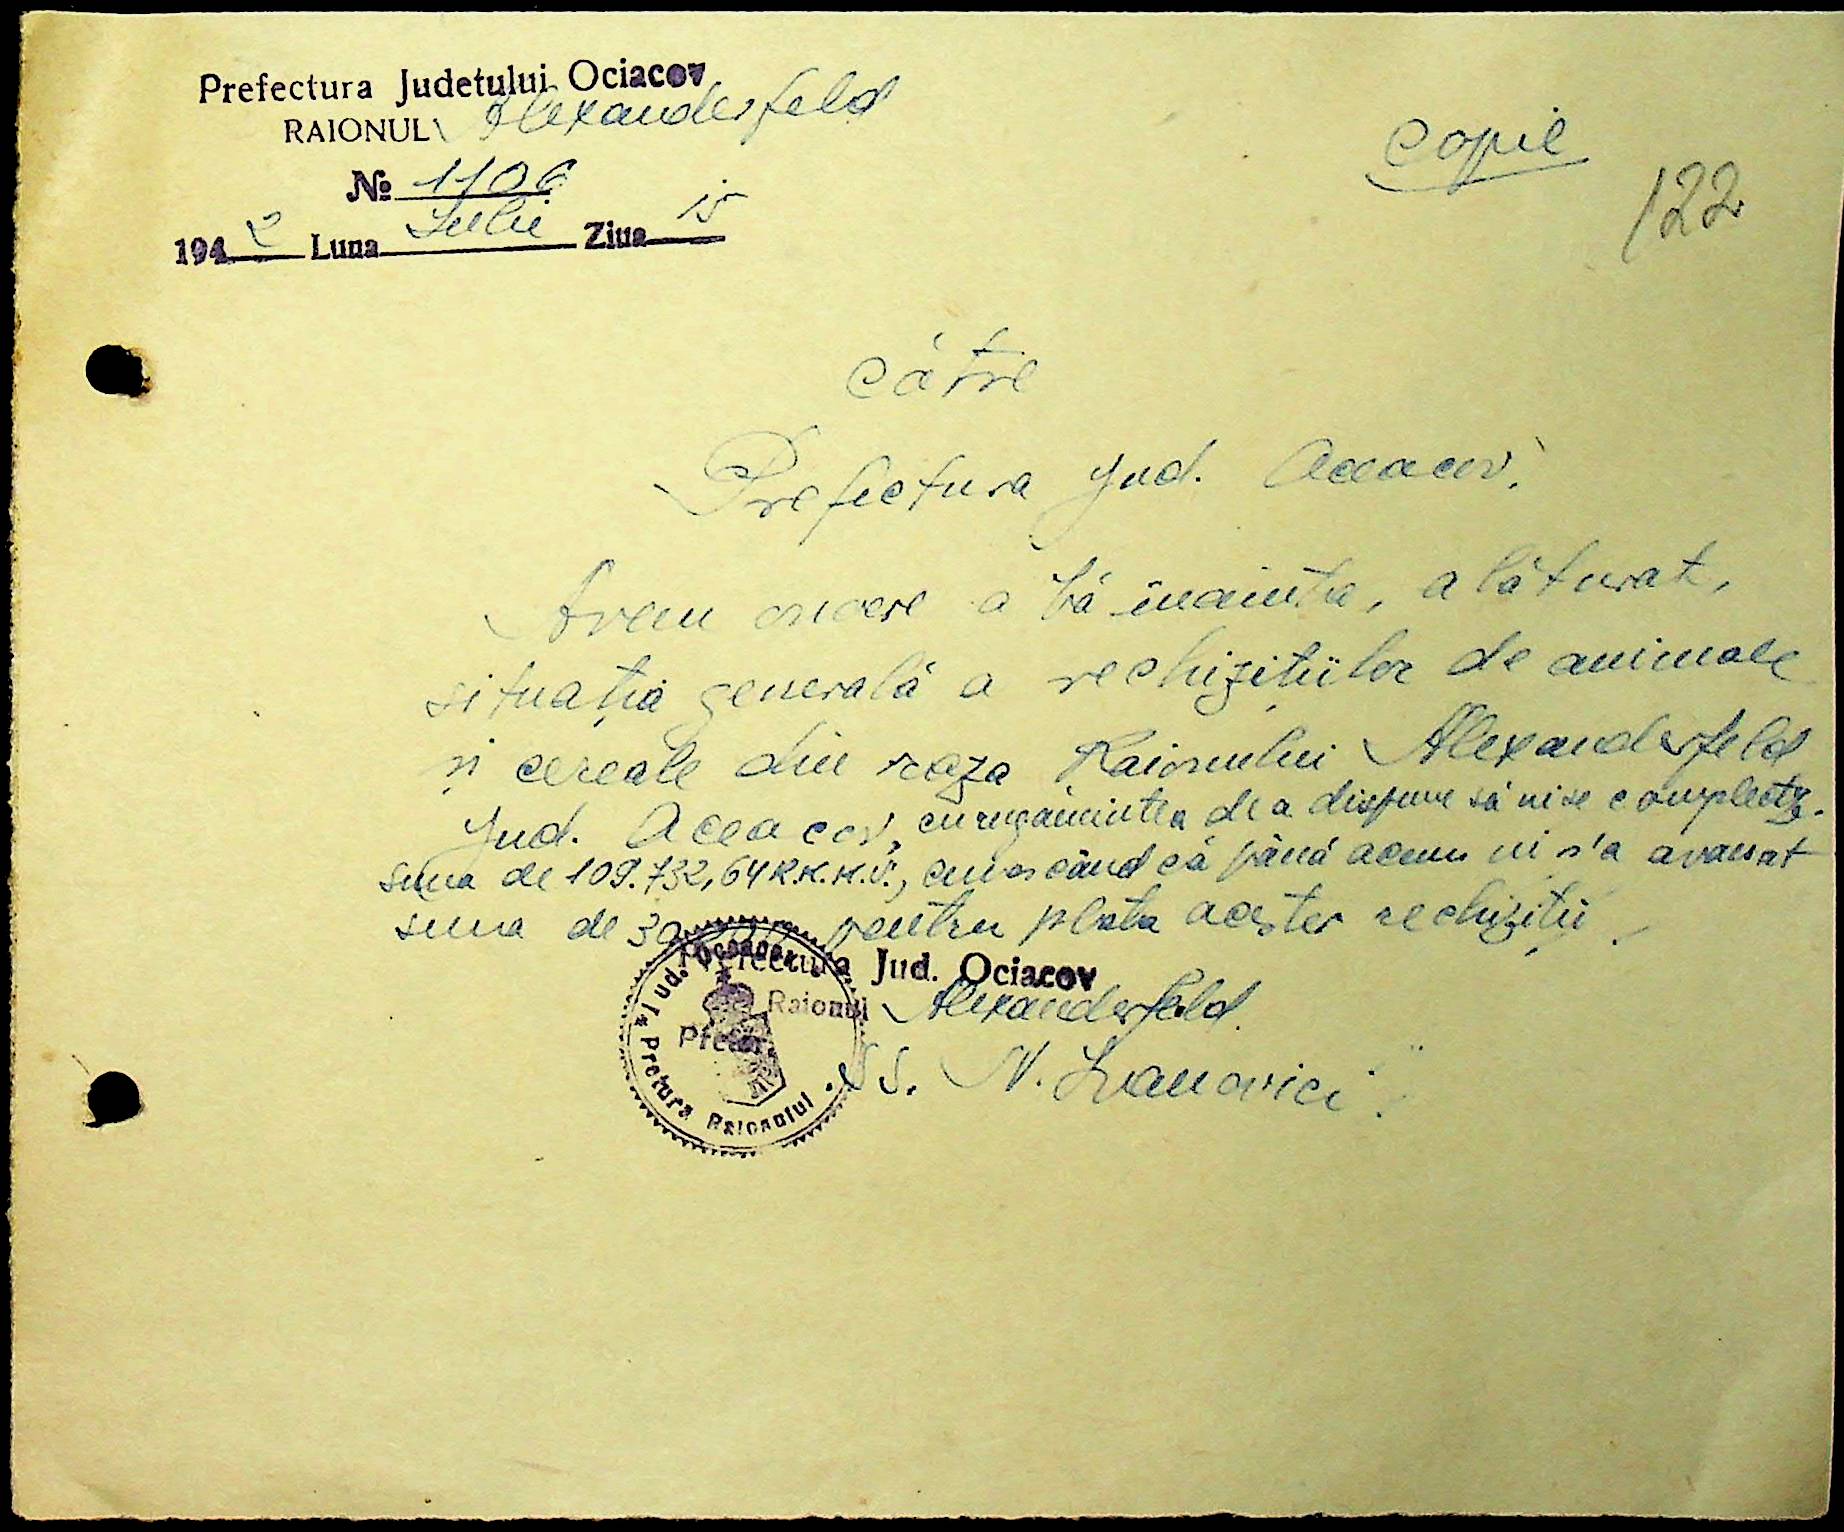 Prefectura Judetului Ociacov
RAIONUL Alexanderfeld
№ 1106
1942 Luna Iulie Ziua 15
Copie
122
Către
Prefectura Jud. Oceacov.
Avem onoare a Vă înainta, alăturat,
situația generală a rechizițiilor de animale
și cereale din raza Raionului Alexanderfeld
Jud. Oceacov, cu rugămintea de a dispune să ni se complecteze
suma de 109.732,64 R.K.K.S., cunoscând că până acum ni s'a avansat
suma de pentru plata acestor rechiziții.
Prefectura Jud. Ociacov
Raionul Alexanderfeld.
Pretor,
ss. N. Ivanovici
* Jud. * Pretura Raionului